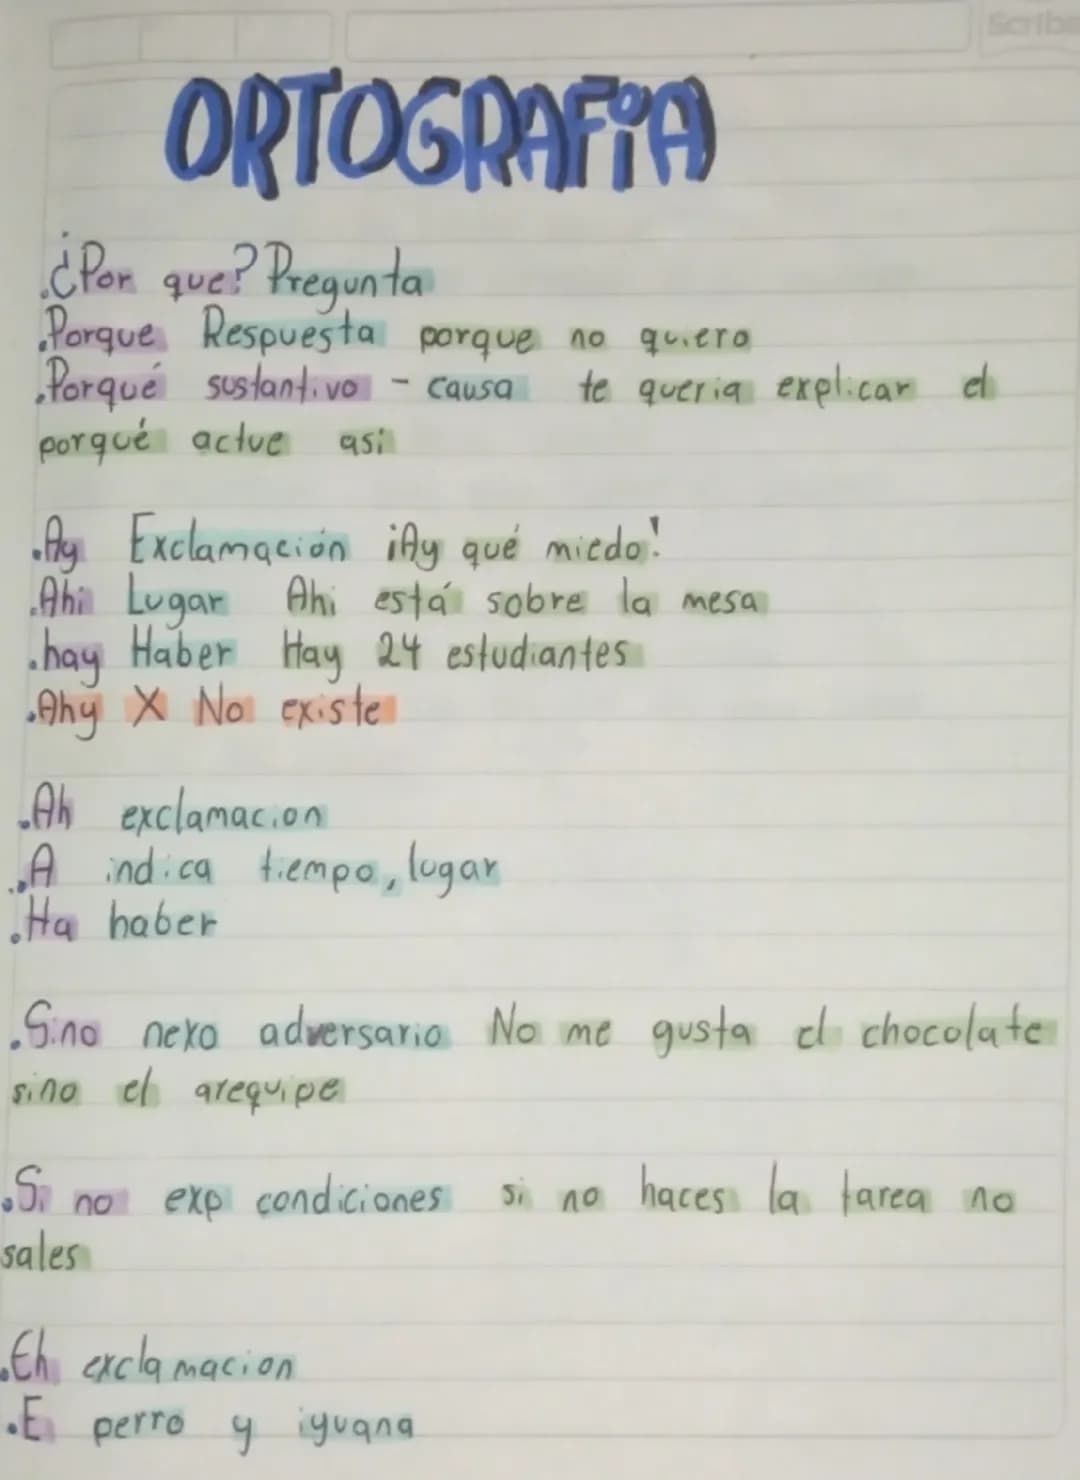 Scribe
ORTOGRAFiA
.¿Por que? Pregunta
.Porque Respuesta porque no quiero
.Porqué sustantivo - causa te queria explicar el
porqué actue asi
.Ay Exclamación ¡Ay qué miedo!
.Ahi Lugar Ahi está sobre la mesa
.hay Haber Hay 24 estudiantes
.Ahy X No existe
.Ah exclamacion
.A indica tiempo, lugar
.Ha haber
.Sino nexo adversario No me gusta el chocolate
sino el arequipe
.Si no exp condiciones si no haces la tarea no
sales
.Eh exclamacion
.E perro y iguana